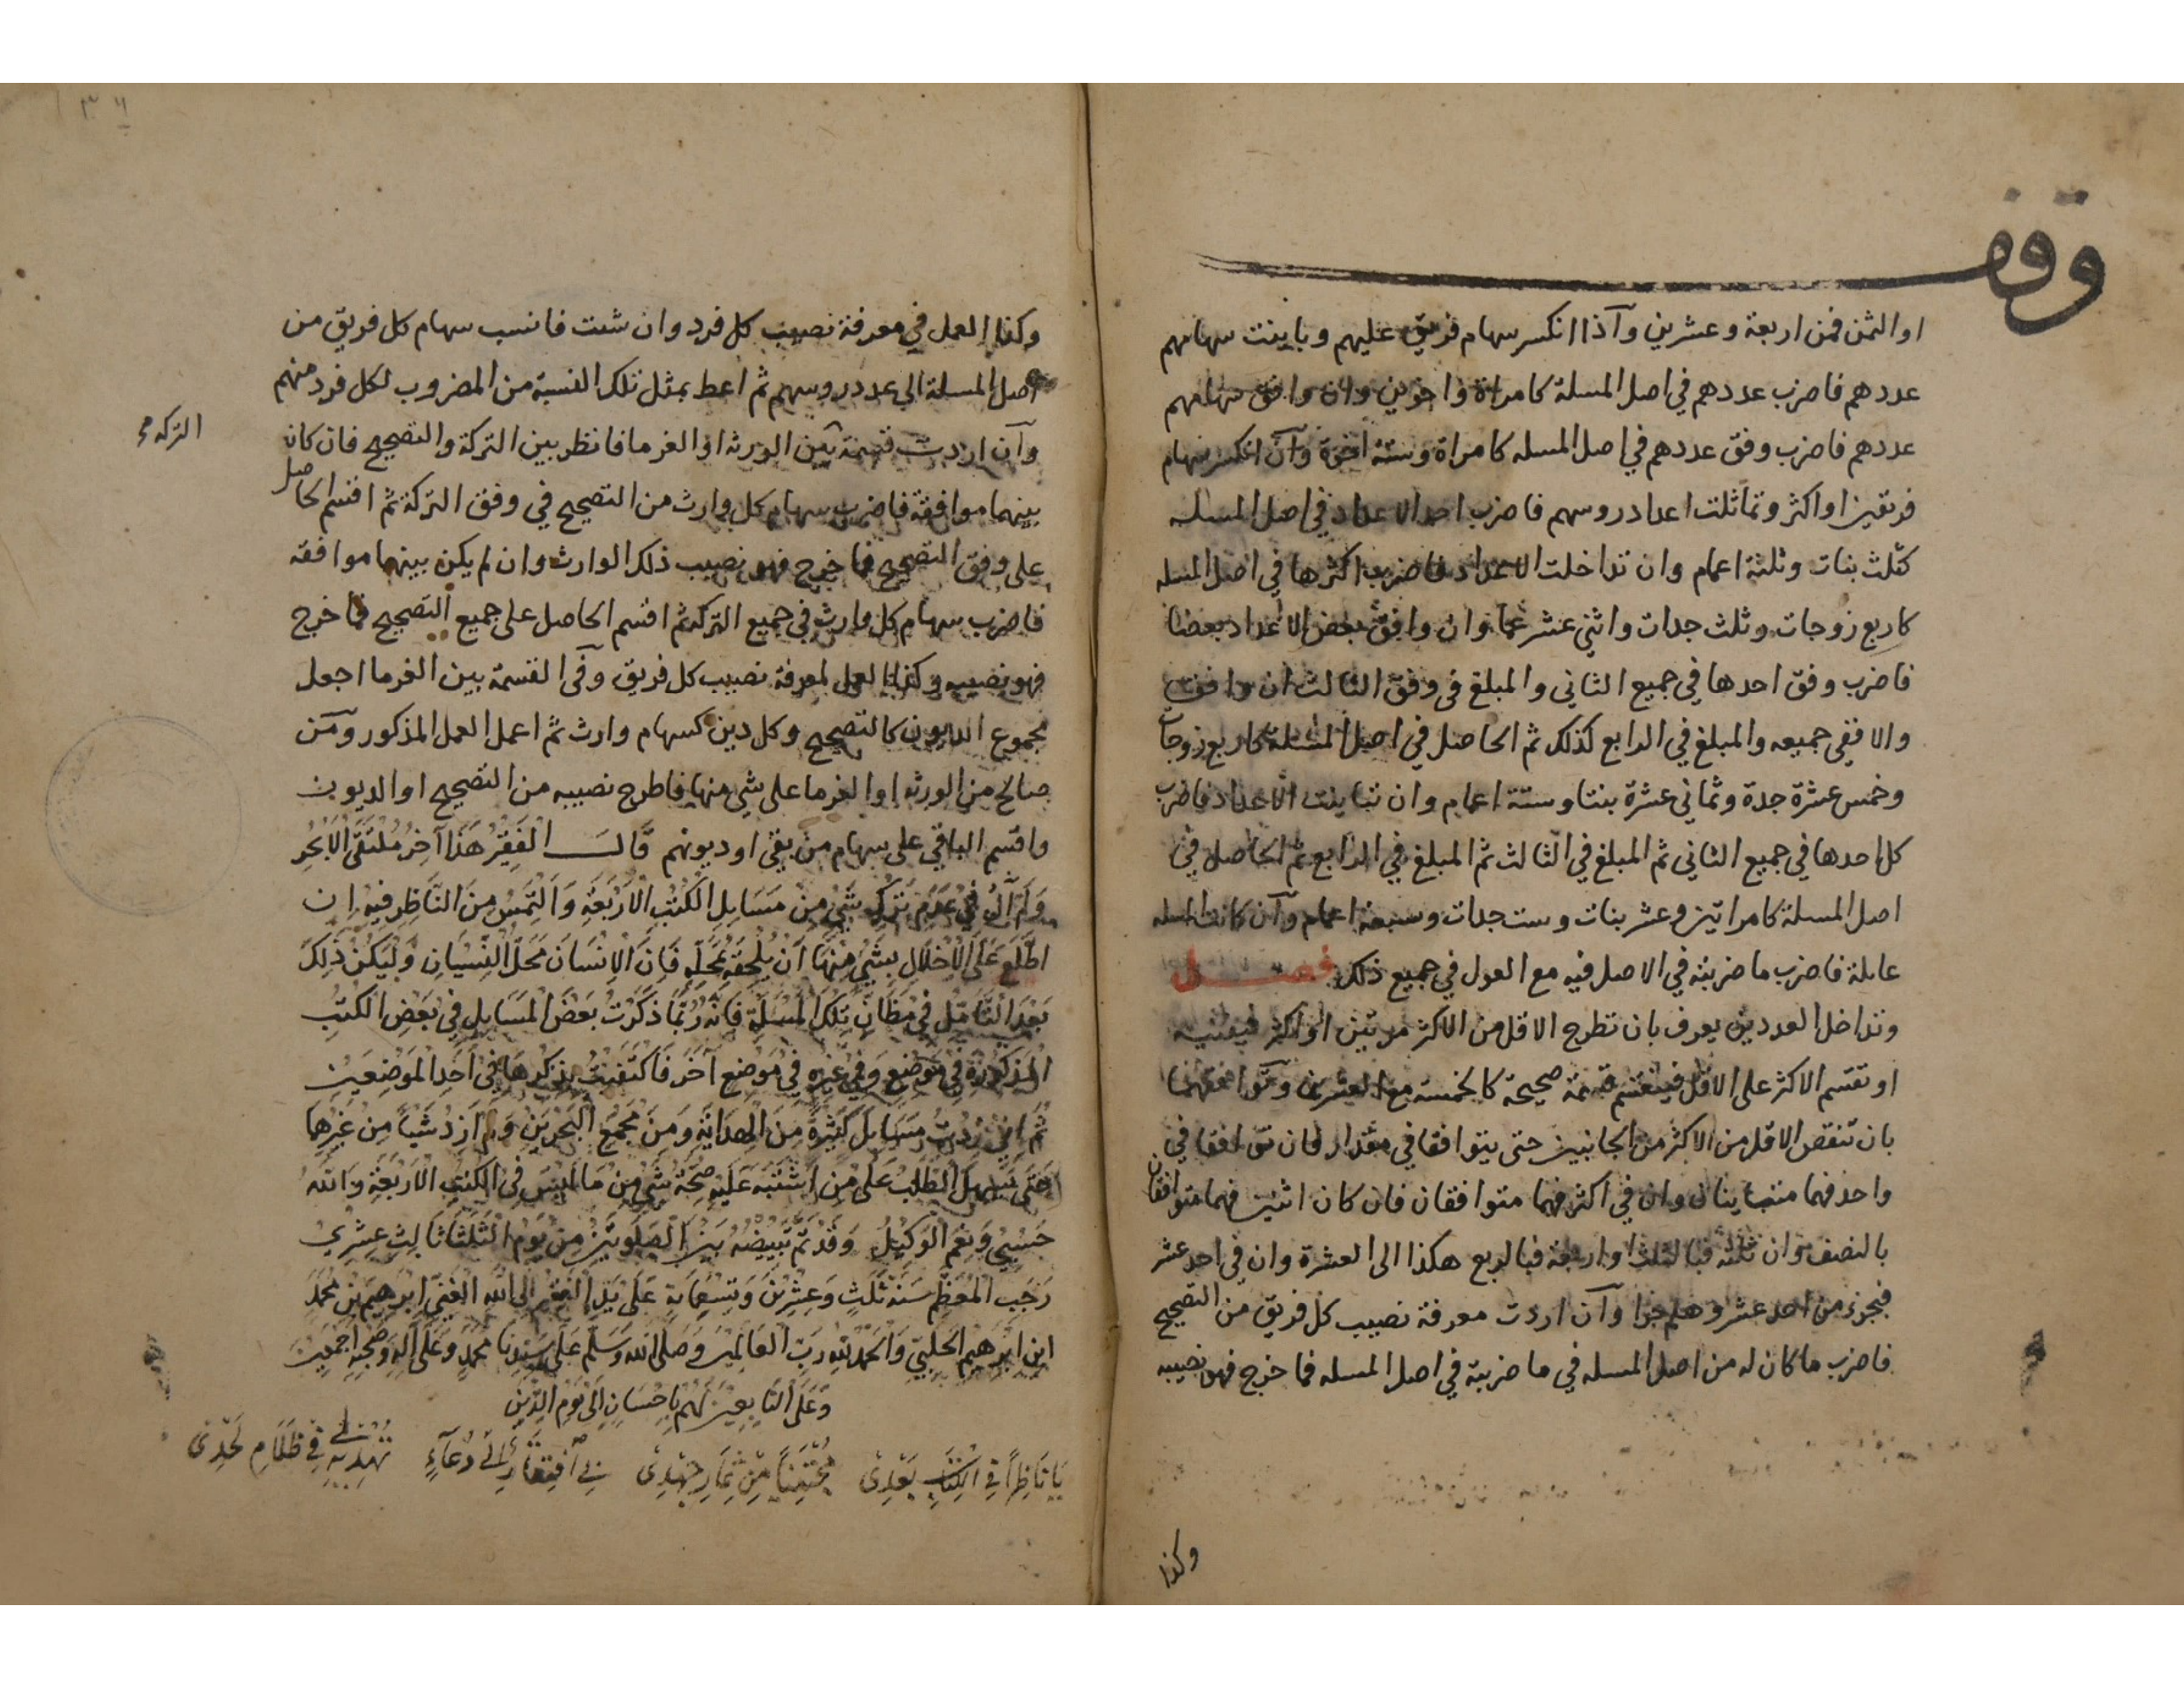 وقف
او الثمن فمن اربعة وعشرين وآذا انكسر سهام فريق عليهم وباينت سهامهم
عددهم فاضرب عددهم في اصل المسلة كامراة واخوين وان وافق سهامهم
عددهم فاضرب وفق عددهم في اصل المسله كامراة وستة اخوة وآن انكسر سهام
فريقين او اكثر وتماثلت اعداد روسهم فاضرب احد الاعداد في اصل المسله
كثلث بنات وثلثة اعمام وان تداخلت الاعداد فاضرب اكثرها في اصل المسله
كاربع زوجات وثلث جدات واثنى عشر عما وان وافق بعض الاعداد بعضا
فاضرب وفق احدها في جميع الثاني والمبلغ في وفق الثالث ان وافق
والا ففي جميعه والمبلغ في الرابع كذلك ثم الحاصل في اصل المسلة كاربع زوجات
وخمس عشرة جدة وثماني عشرة بنتا وستة اعمام وان تباينت الاعداد فاضرب
كل احدها في جميع الثاني ثم المبلغ في الثالث ثم المبلغ في الرابع ثم الحاصل في
اصل المسلة كامراتين وعشر بنات وست جدات وسبعة اعمام وآن كانت المسله
عايلة فاضرب ما ضربته في الاصل فيه مع العول في جميع ذلك فصل
وتداخل العددين يعرف بان تطرح الاقل من الاكثر مرتين او اكثر فيفنيه
او تقسم الاكثر على الاقل فينقسم قسمة صحيحة كالخمسة مع العشرين وتوافقهما
بان تنقص الاقل من الاكثر من الجانبين حتى يتوافقا في مقدار فان توافقا في
واحد فهما متباينان وان في اكثر فهما متوافقان فان كان اثنين فهما متوافقان
بالنصف وان ثلثة فبالثلث او اربعة فبالربع هكذا الى العشرة وان في احد عشر
فبجزء من احد عشر وهلم جرا وآن اردت معرفة نصيب كل فريق من التصحيح
فاضرب ما كان له من اصل المسله في ما ضربته في اصل المسله فما خرج فهو نصيبه
وكذا
وكذا العمل في معرفة نصيب كل فرد وان شئت فانسب سهام كل فريق من
اصل المسلة الى عدد روسهم ثم اعط بمثل تلك النسبة من المضروب لكل فرد منهم
وآن اردت قسمة بين الورثه او الغرما فانظر بين التركة والتصحيح فان كان
التركه
بينهما موافقة فاضرب سهام كل وارث من التصحيح في وفق التركة ثم اقسم الحاصل
على وفق التصحيح فما خرج فهو نصيب ذلك الوارث وان لم يكن بينهما موافقه
فاضرب سهام كل وارث في جميع التركه ثم اقسم الحاصل على جميع التصحيح فما خرج
فهو نصيبه وكذا العمل لمعرفة نصيب كل فريق وفى القسمة بين الغرما اجعل
مجموع الديون كالتصحيح وكل دين كسهام وارث ثم اعمل العمل المذكور ومن
صالح من الورثه او الغرما على شي منها فاطرح نصيبه من التصحيح او الديون
واقسم الباقي على سهام من بقي او ديونهم قَالَ الْفَقِيرُ هَذَا آخِرُ مُلْتَقَى الْاَبْحُرِ
وَلَمْ آلُ فِي عَدَمِ تَرْكِ شَيْ مِنْ مَسَايِلِ الْكُتُبِ الْاَرْبَعَةِ وَاَلْتَمِسُ مِنَ النَّاظِرِ فِيهِ اِنِ
اطَّلَعَ عَلَى الْاِخْلَالِ بِشَيْ مِنْهَا اَنْ يُلْحِقَهُ بِمَحَلِّهِ فَاِنَّ الْاِنْسَانَ مَحَلُّ النِّسْيَانِ وَلْيَكُنْ ذَلِكَ
بَعْدَ التَّاَمُّلِ فِي مَظَانِّ تِلْكَ الْمَسْلَةِ فَاِنَّهُ رُبَّمَا ذَكَرْتُ بَعْضَ الْمَسَايِلِ فِي بَعْضِ الْكُتُبِ
الْمَذْكُورَةِ فِي مَوْضِعٍ وَفِي غَيْرِهِ فِي مَوْضِعٍ آخَرَ فَاكْتَفَيْتُ بِذِكْرِهَا فِي اَحَدِ الْمَوْضِعَيْنِ
ثُمَّ اِنِّي زِدْتُ مَسَايِلَ كَثِيرَةً مِنَ الْهِدَايَةِ وَمِنْ مَجْمَعِ الْبَحْرَيْنِ وَلَمْ اَزِدْ شَيْاً مِنْ غَيْرِهَا
حَتَّى يَسْهُلَ الطَّلَبُ عَلَى مَنِ اشْتَبَهَ عَلَيْهِ صِحَّةُ شَيْ مِنْ مَا لَيْسَ فِي الْكُتُبِ الْاَرْبَعَةِ وَاللّٰهُ
حَسْبِي وَنِعْمَ الْوَكِيلُ وَقَدْ تَمَّ تَبْيِيضُهُ بَيْنَ الصَّلَوتَيْنِ مِنْ يَوْمِ الثَّلَثَا ثَالِثِ عِشْرِي
رَجَبِ الْمُعَظَّمِ سَنَةَ ثَلَثٍ وَعِشْرِينَ وَتِسْعُمِايَةٍ عَلَى يَدِ الْفَقِيرِ اِلَى اللّٰهِ الْغَنِيِّ اِبْرَهِيمَ بْنِ مُحَمَّدَ
ابْنِ اِبْرَهِيمَ الْحَلَبِيِّ وَالْحَمْدُ لِلّٰهِ رَبِّ الْعَالَمِينَ وَصَلَّى اللّٰهُ وَسَلَّمَ عَلَى سَيِّدِنَا مُحَمَّدٍ وَعَلَى آلِهِ وَصَحْبِهِ اَجْمَعِينَ
وَعَلَى التَّابِعِينَ لَهُمْ بِاِحْسَانٍ اِلَى يَوْمِ الدِّينِ
يَا نَاظِراً فِي الْكِتَابِ بَعْدِى مُجْتَنِياً مِنْ ثِمَارِ جُهْدِى بِي افْتِقَارٌ اِلَى دُعَآءٍ تُهْدِيهِ لِي فِي ظَلَامِ لَحْدِى